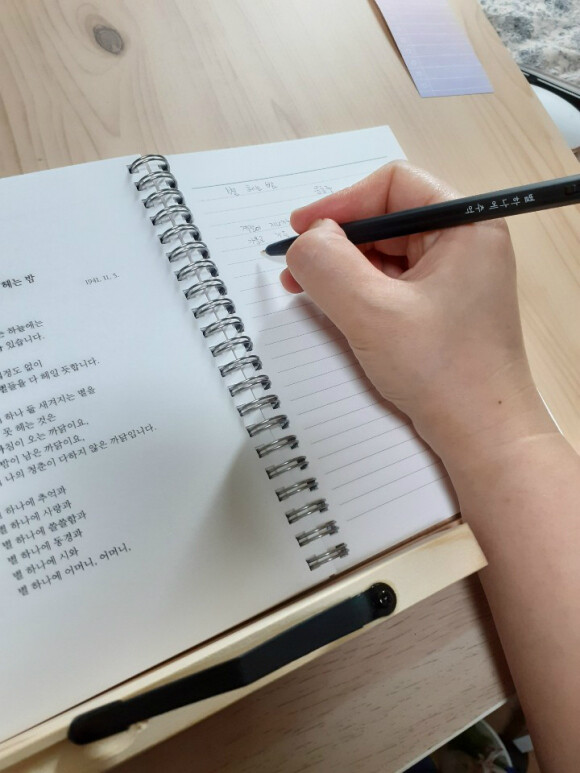 헤는 밤
1941. 11. 5.
하늘에는
있습니다.
없이
별들을 다 헤일 듯합니다.
하나 둘 새겨지는 별을
못 헤는 것은
아침이 오는 까닭이요,
밤이 남은 까닭이요,
나의 청춘이 다하지 않은 까닭입니다.
하나에 추억과
별 하나에 사랑과
별 하나에 쓸쓸함과
별 하나에 동경과
별 하나에 시와
별 하나에 어머니, 어머니,
별 헤는 밤
윤동주
별 하나에 추억